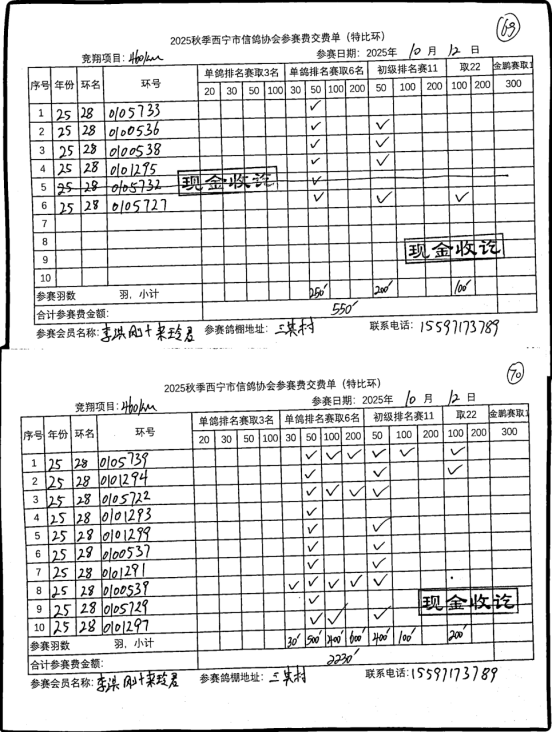 69
2025秋季西宁市信鸽协会参赛费交费单（特比环）
竞翔项目：460km 参赛日期：2025年 10 月 12 日
序号 年份 环名 环号 单鸽排名赛取3名 单鸽排名赛取6名 初级排名赛11 取22 金鹏赛取1
20 30 50 100 30 50 100 200 50 100 200 100 200 300
1 25 28 0105733 ✓
2 25 28 0100536 ✓ ✓
3 25 28 0100538 ✓ ✓
4 25 28 0101295 ✓ ✓
5 25 28 0105732 ✓
现金收讫
6 25 28 0105727 ✓ ✓ ✓
7
8
9
现金收讫
10
参赛羽数 羽，小计 250 200 100
合计参赛费金额： 550
参赛会员名称： 参赛鸽棚地址：三其村 联系电话：15597173789
70
2025秋季西宁市信鸽协会参赛费交费单（特比环）
竞翔项目：460km 参赛日期：2025年 10 月 12 日
序号 年份 环名 环号 单鸽排名赛取3名 单鸽排名赛取6名 初级排名赛11 取22 金鹏赛取1
20 30 50 100 30 50 100 200 50 100 200 100 200 300
1 25 28 0105739 ✓ ✓ ✓ ✓ ✓ ✓
2 25 28 0101294 ✓ ✓ ✓
3 25 28 0105722 ✓ ✓ ✓ ✓
4 25 28 0101293 ✓
5 25 28 0101299 ✓ ✓
6 25 28 0100537 ✓ ✓
7 25 28 0101291 ✓ ✓
8 25 28 0100539 ✓ ✓ ✓ ✓ ✓
9 25 28 0105729 ✓
现金收讫
10 25 28 0101297 ✓ ✓ ✓
参赛羽数 羽，小计 30 500 400 600 400 100 200
合计参赛费金额： 2230
参赛会员名称： 参赛鸽棚地址：三其村 联系电话：15597173789